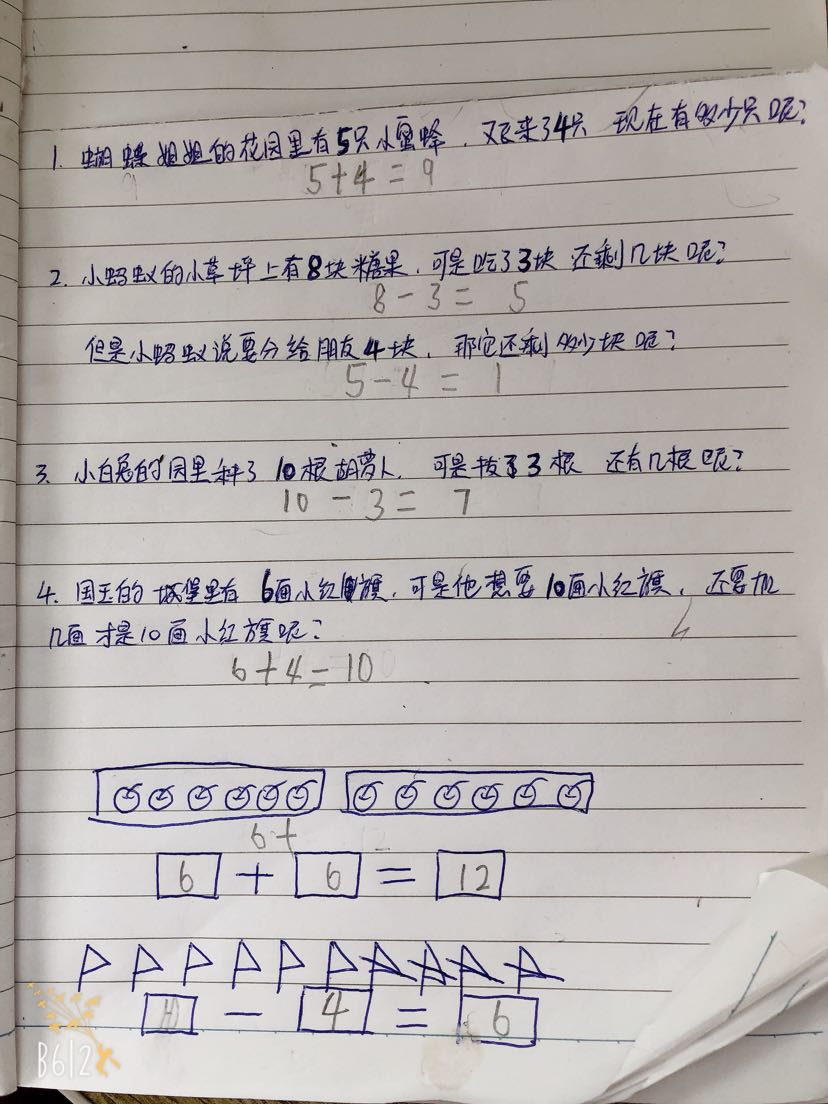 1. 蝴蝶姐姐的花园里有5只小蜜蜂，又飞来了4只 现在有多少只呢？
5+4=9
2. 小蚂蚁的小草坪上有8块糖果，可是吃了3块 还剩几块呢？
8-3= 5
但是小蚂蚁说要分给朋友4块，那它还剩多少块呢？
5-4=1
3. 小白兔的园里种了10根胡萝卜，可是拔了3根 还有几根呢？
10-3=7
4. 国王的城堡里有6面小红旗，可是他想要10面小红旗，还要加
几面才是10面小红旗呢？
6+4=10
6+
6+6=12
10-4=6
B612